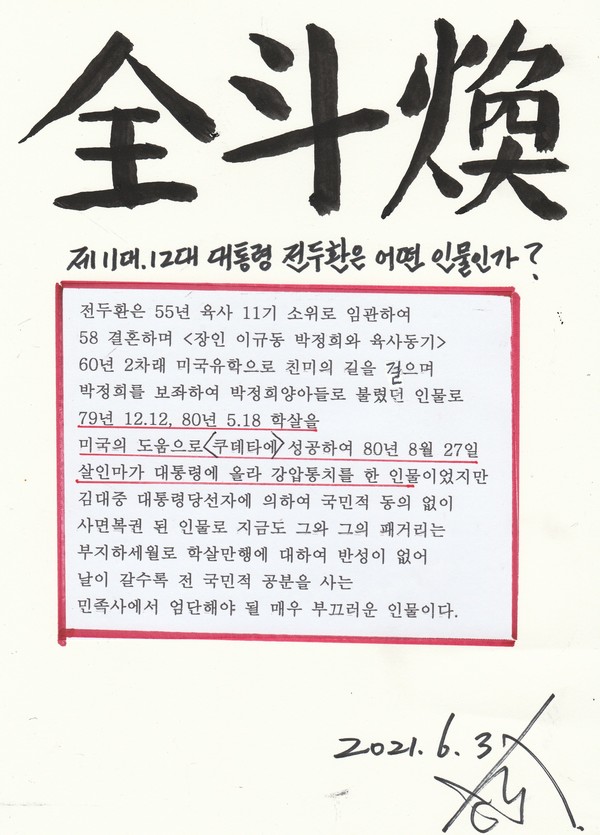 全斗煥
제11대.12대 대통령 전두환은 어떤 인물인가?
전두환은 55년 육사 11기 소위로 임관하여
58 결혼하며 <장인 이규동 박정희와 육사동기>
60년 2차래 미국유학으로 친미의 길을 걸으며
박정희를 보좌하여 박정희양아들로 불렸던 인물로
79년 12.12, 80년 5.18 학살을
미국의 도움으로<쿠데타에>성공하여 80년 8월 27일
살인마가 대통령에 올라 강압통치를 한 인물이었지만
김대중 대통령당선자에 의하여 국민적 동의 없이
사면복권 된 인물로 지금도 그와 그의 패거리는
부지하세월로 학살만행에 대하여 반성이 없어
날이 갈수록 전 국민적 공분을 사는
민족사에서 엄단해야 될 매우 부끄러운 인물이다.
2021.6.3